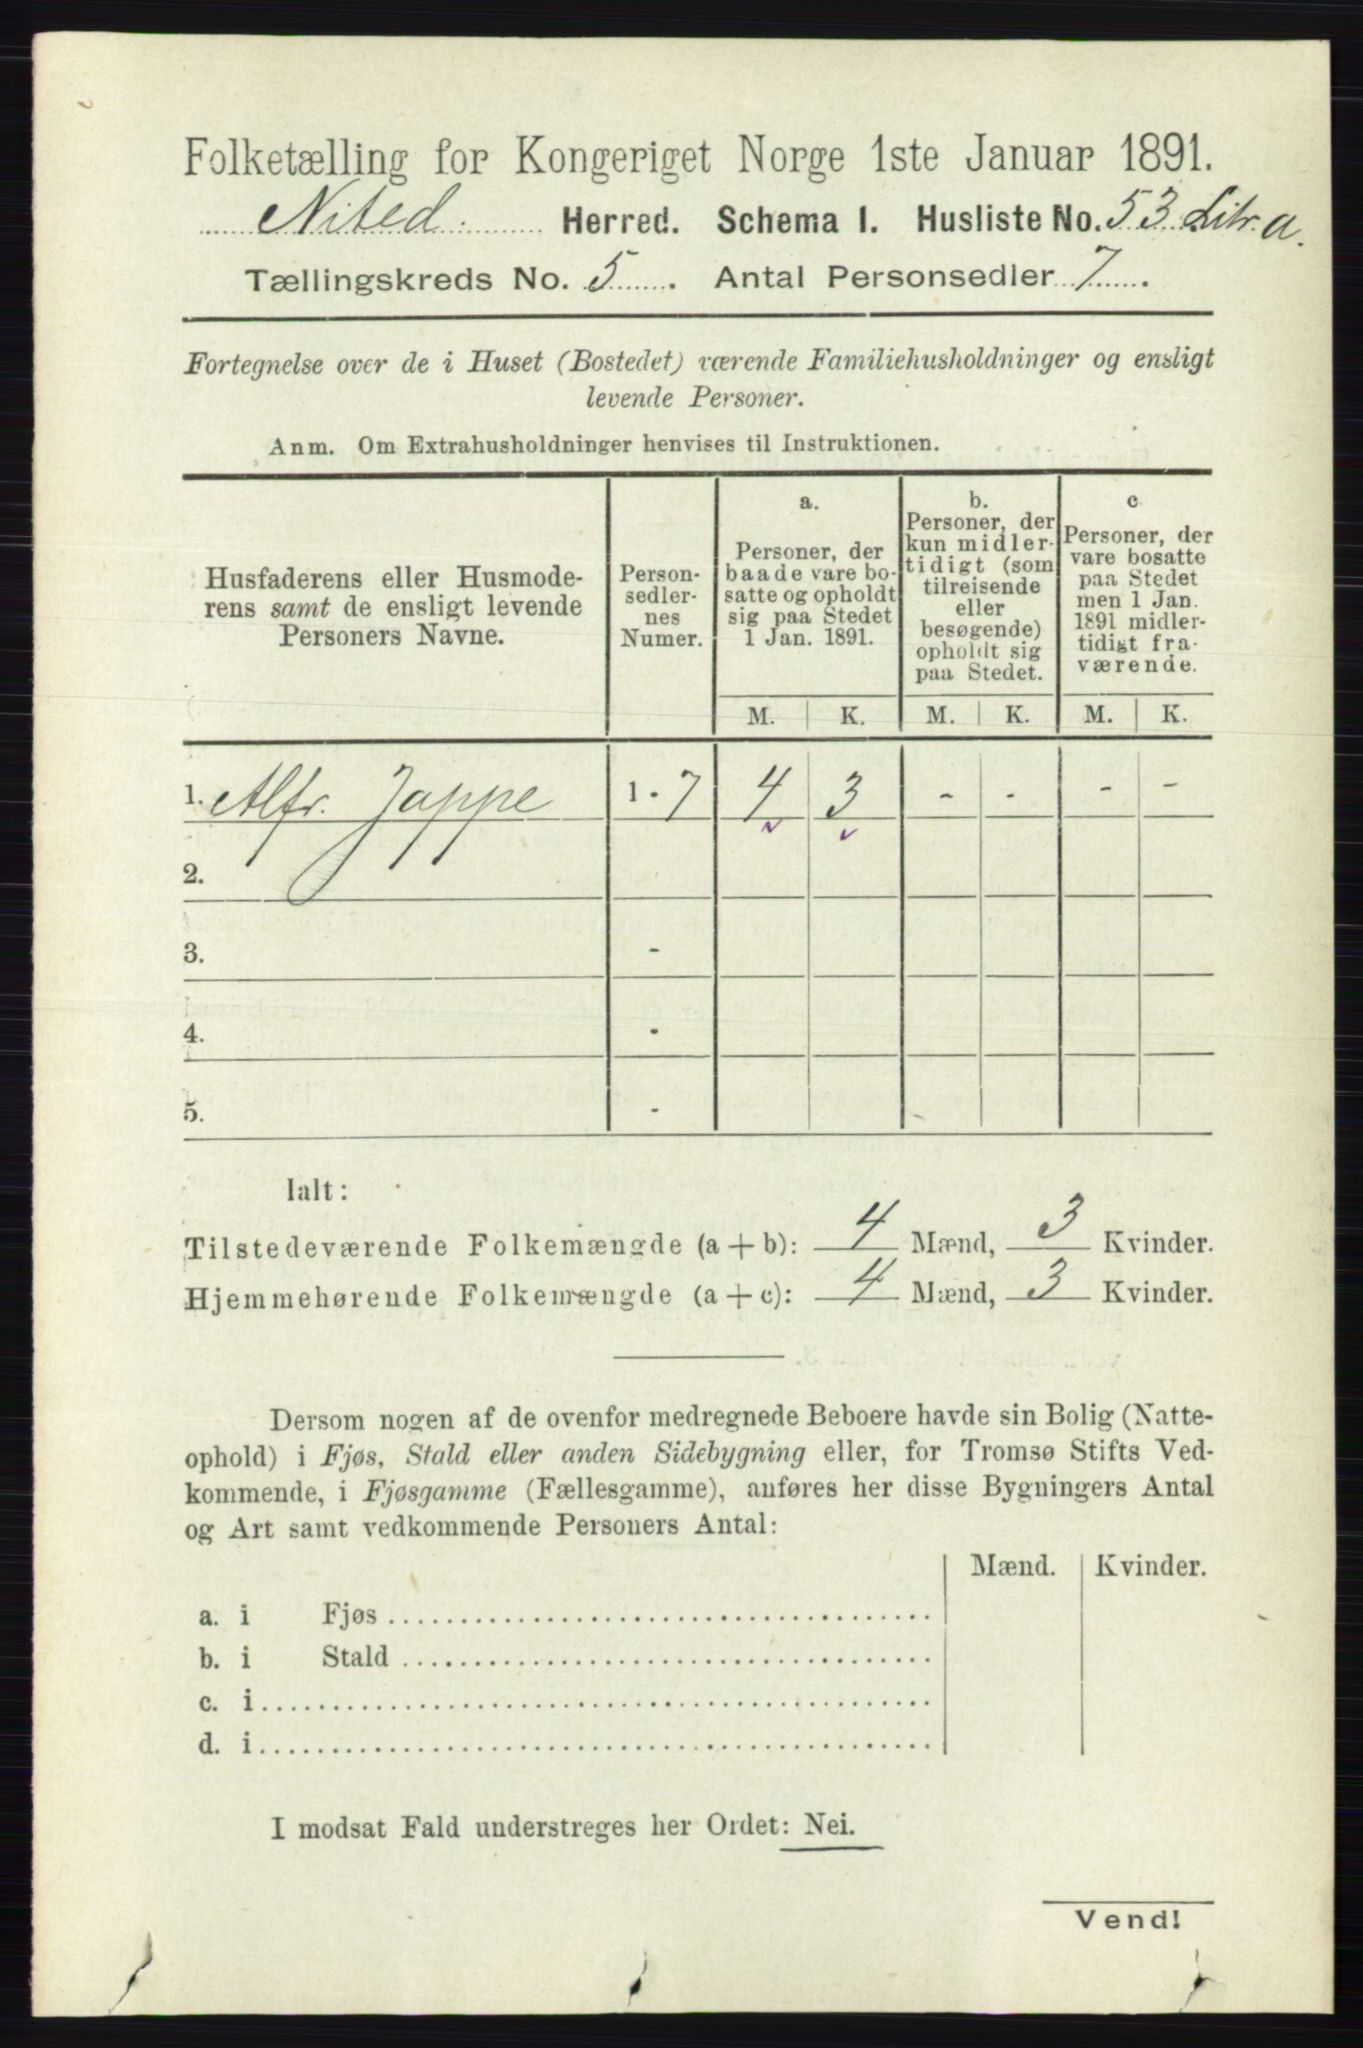 Folketælling for Kongeriget Norge 1ste Januar 1891.
Nited Herred. Schema I. Husliste No. 53 Litr. a.
Tællingskreds No. 5. Antal Personsedler 7.
Fortegnelse over de i Huset (Bostedet) værende Familiehusholdninger og ensligt
levende Personer.
Anm. Om Extrahusholdninger henvises til Instruktionen.
Husfaderens eller Husmode-
rens samt de ensligt levende
Personers Navne.
Person-
sedler-
nes
Numer.
a.
Personer, der
baade vare bo-
satte og opholdt
sig paa Stedet
1 Jan. 1891.
b.
Personer, der
kun midler-
tidigt (som
tilreisende
eller
besøgende)
opholdt sig
paa Stedet.
c
Personer, der
vare bosatte
paa Stedet
men 1 Jan.
1891 midler-
tidigt fra-
værende.
M. K. M. K. M. K.
1. Alfr. Jappe 1 - 7 4 3 - - - -
2.
3. -
4. -
5. -
Ialt:
Tilstedeværende Folkemængde (a + b): 4 Mænd, 3 Kvinder.
Hjemmehørende Folkemængde (a + c): 4 Mænd, 3 Kvinder.
Dersom nogen af de ovenfor medregnede Beboere havde sin Bolig (Natte-
ophold) i Fjøs, Stald eller anden Sidebygning eller, for Tromsø Stifts Ved-
kommende, i Fjøsgamme (Fællesgamme), anføres her disse Bygningers Antal
og Art samt vedkommende Personers Antal:
Mænd. Kvinder.
a. i Fjøs
b. i Stald
c. i
d. i
I modsat Fald understreges her Ordet: Nei.
Vend!